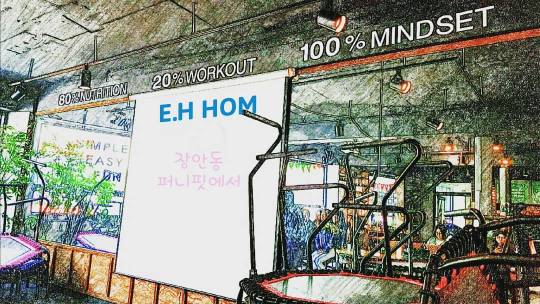 80% NUTRITION
20% WORKOUT
100% MINDSET
E.H HOM
장안동
퍼니핏에서
EASY